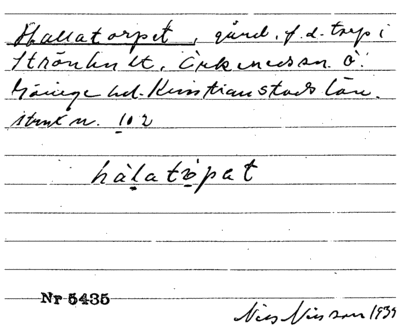 Hallatorpet, gård, f.d. torp i
Strönhult, Örkeneds sn. Ö.
Göinge hd. Kristianstads län.
102
hàlatòpat
Nr 5435
Nils Nilsson 1939